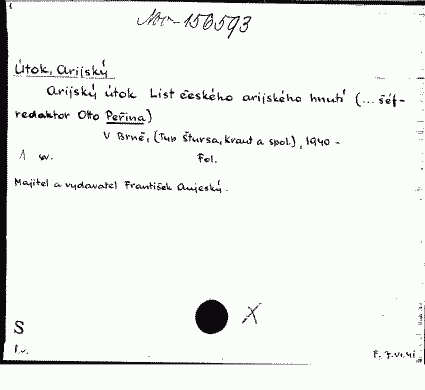 156593
Útok, Arijský
Arijský útok List českého arijského hnutí (... šéf-
redaktor Otto Peřina)
V Brně, (Typ Štursa, Kraut a spol.), 1940 -
1 sv. Fol.
Majitel a vydavatel František
S